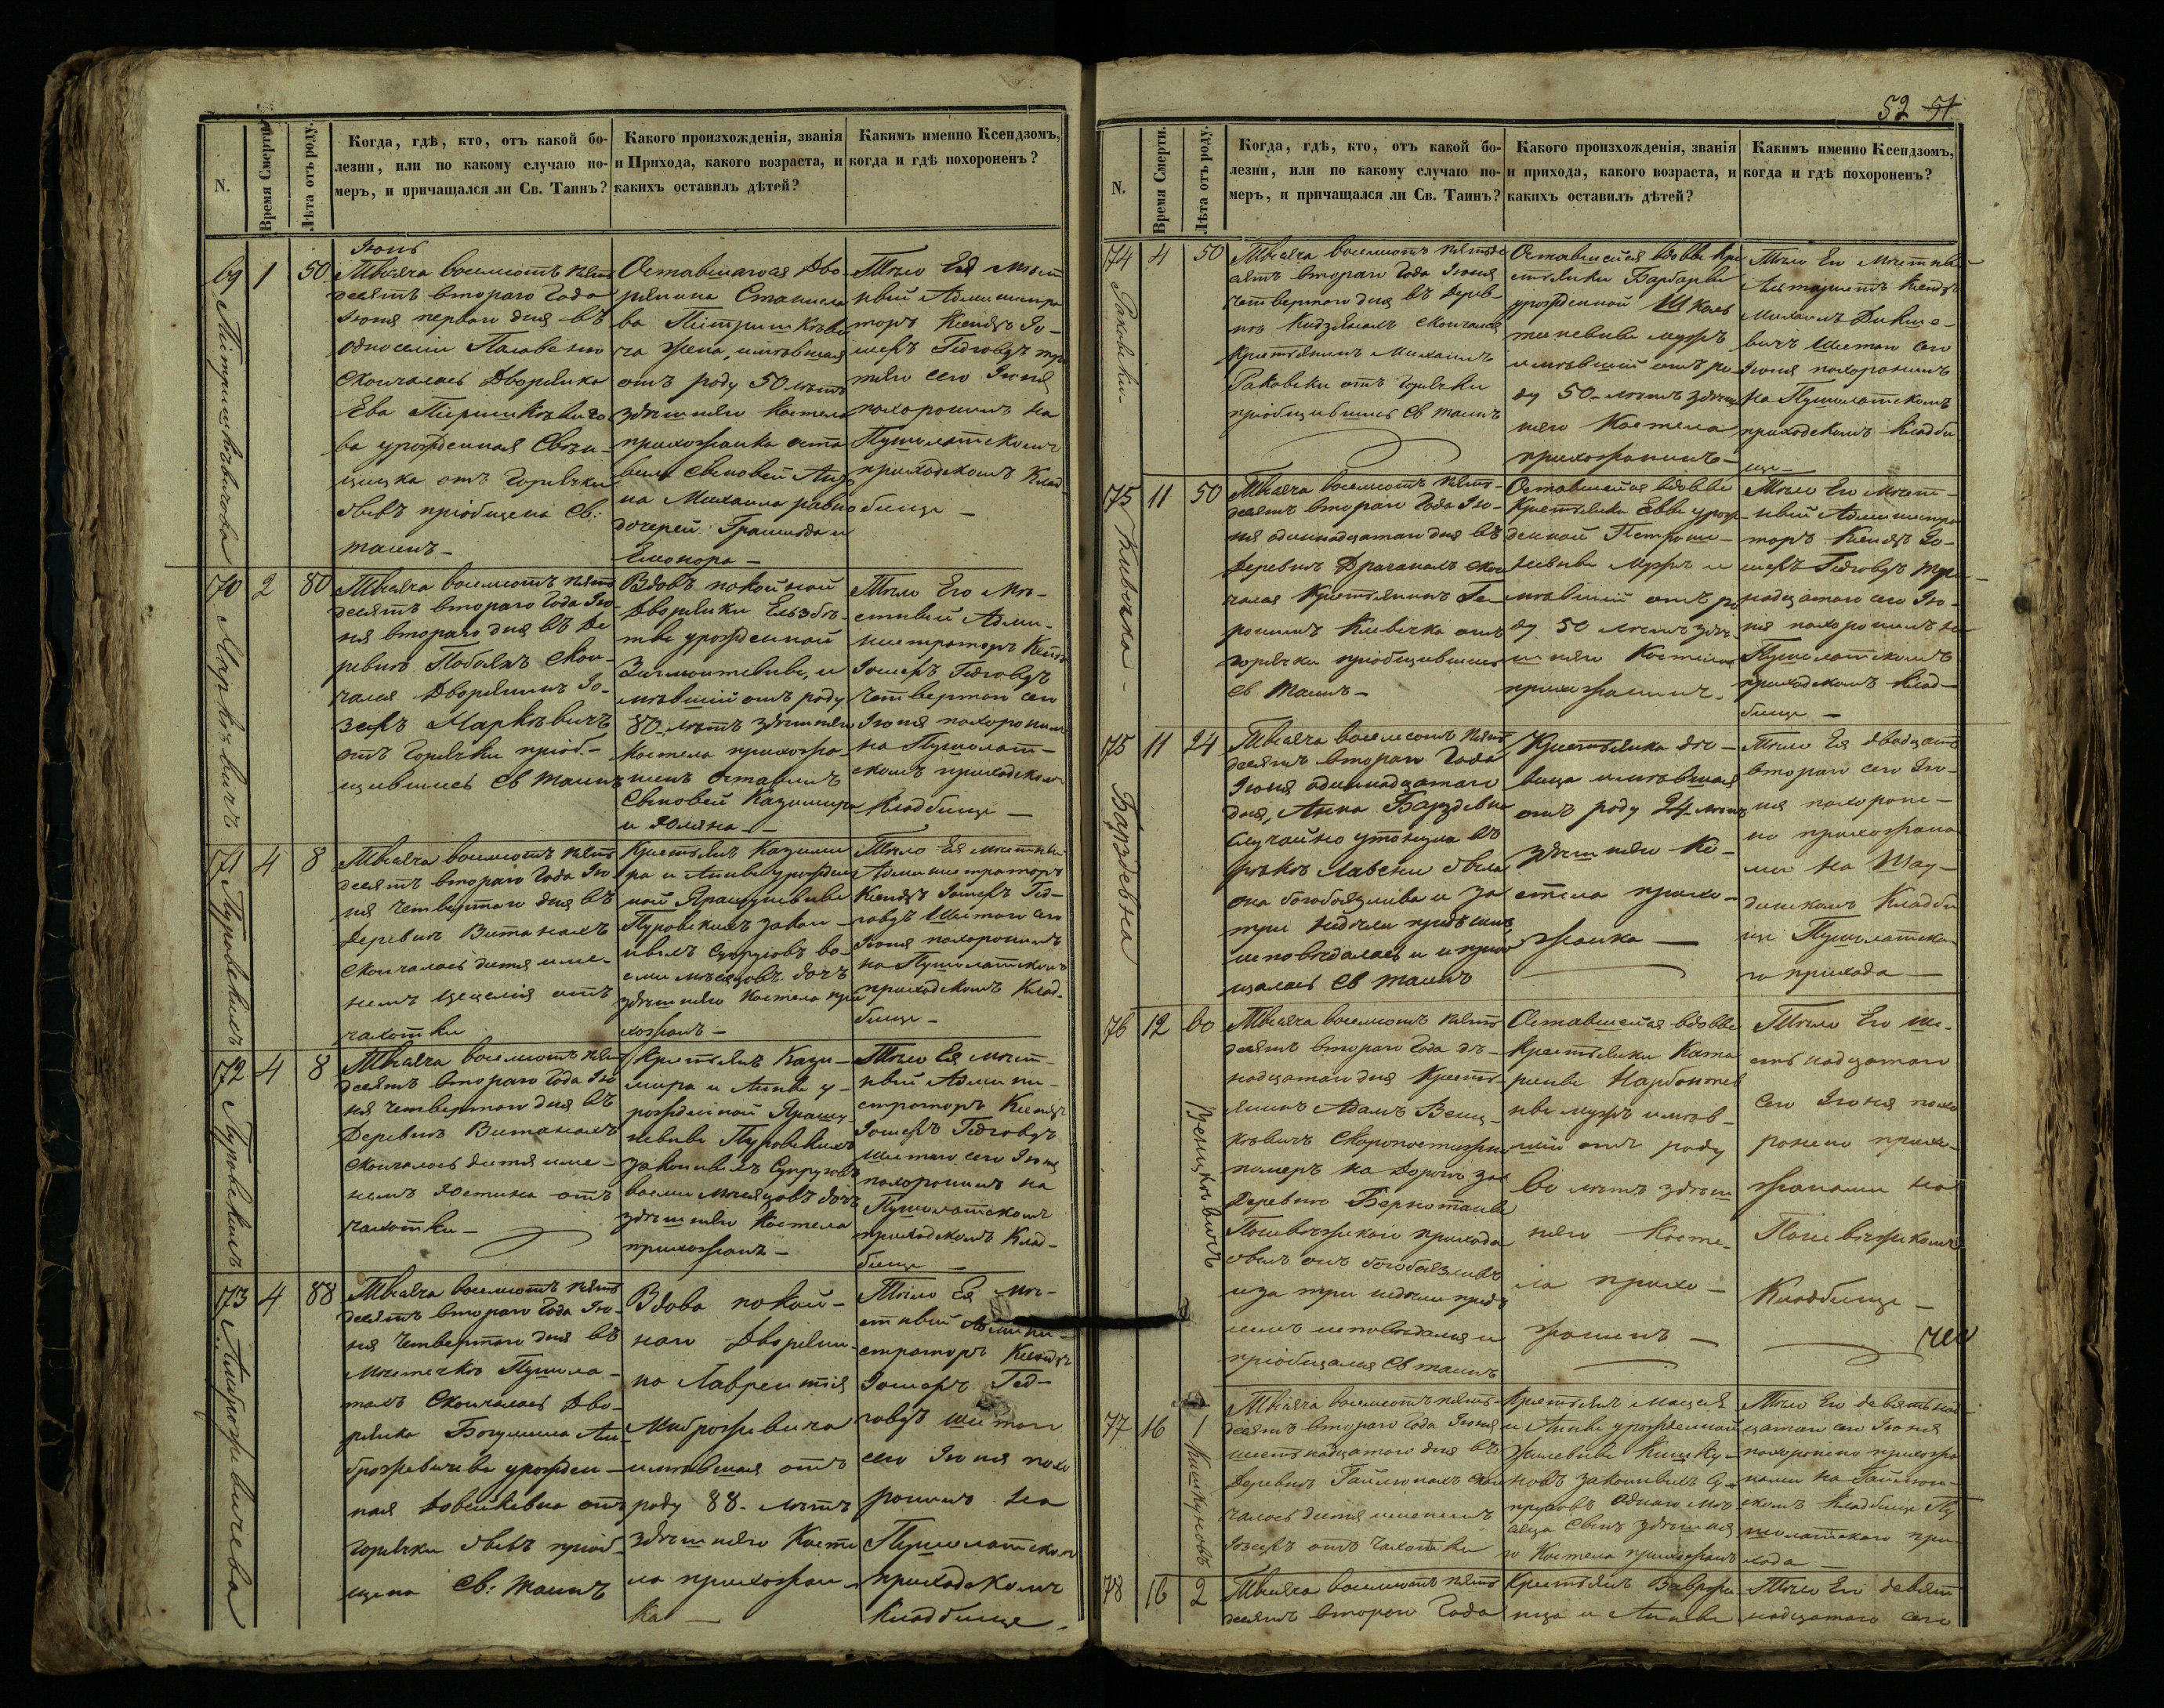 N.
Время Смерти.
Лѣта отъ роду.
Когда, гдѣ, кто, отъ какой бо-
лезни, или по какому случаю по-
меръ, и причащался ли Св. Таинъ?
Какого произхожденія, званія
и Прихода, какого возраста, и
какихъ оставилъ дѣтей?
Какимъ именно Ксендзомъ,
когда и гдѣ похороненъ?
Іюнь
69
1
50
Тысяча восемсотъ пять
десятъ втораго Года
Іюня перваго дня въ
скончалась Дворянка
Ева
ва урожденная
отъ Горячки
бывъ пріобщена Св:
таинъ
Оставшагося Дво-
рянина Станисла
ва
жена, имѣвшая
отъ роду 50 лѣтъ
здѣшняго Костела
прихожанка оста
вила сыновей
на Михаила
дочерей
Елионора
Тѣло Ея мѣст
ный Админстра
торъ Ксендзъ Іо-
шефъ Гедговдъ тре
тяго сего Іюня
похоронилъ на
Пушолатскомъ
приходскомъ Клад
бище
70
Марк
2
80
Тысяча восемсотъ пять
десятъ втораго Года Ію
ня втораго дня въ Де
ревнѣ скон-
чался Дворянинъ Іо-
зефъ
отъ Горячки пріоб-
щившись Св таинъ
Вдовъ покойной
Дворянки Ельзбѣ-
ты урожденной
и
мѣвшій отъ роду
80 лѣтъ здѣшняго
Костела прихожа
нинъ оставилъ
Сыновей Казимира
и Юліяна
Тѣло Его мѣ-
стный Адми-
нистраторъ Ксендзъ
Іошефъ Гедговдъ
четвертаго сего
Іюня похоронилъ
на Пушолат-
скомъ приходскомъ
Кладбище
71
Пуровскихъ
4
8
Тысяча восемсотъ пять
десятъ втораго Года Ію
ня четвертаго дня въ
Деревнѣ Витанахъ
скончалась дитя име-
немъ Цецелія отъ
чахотки
Крестьянъ Казими
ра и Анны урожден
ной
Пуровскихъ закон-
ныхъ Супруговъ во-
сми мѣсяцовъ дочъ
здѣшняго Костела при
хожанъ
Тѣло Ея мѣстный
Администраторъ
Ксендзъ Іошефъ Гед-
говдъ шестаго сего
Іюня похоронилъ
на Пушолатскомъ
приходскомъ Клад-
бище
72
Пуровскихъ
4
8
Тысяча восемсотъ пять
десятъ втораго Года Ію
ня четвертаго дня въ
Деревнѣ Витанахъ
скончалось дитя име-
немъ Юстина отъ
чахотки
Крестьянъ Кази-
мира и Анны у-
рожденной
Пуровскихъ
законныхъ Супруговъ
восми мѣсяцовъ дочъ
здѣшняго Костела
прихожанъ
Тѣло Ея мѣст-
ный Админи-
страторъ Ксендзъ
Іошефъ Гедговдъ
шестаго сего Іюня
похоронилъ на
Пушолатскомъ
приходскомъ Клад-
бище
73
Амброжевичева
4
88
Тысяча восемсотъ пять
десятъ втораго Года Ію
ня четвертаго дня въ
мѣстечкѣ Пушола-
тахъ скончалась Дво-
рянка Богумила Ам-
брожевичева урожден-
ная Довейковна отъ
горячки бывъ пріоб-
щена Св: таинъ
Вдова покой-
наго Дворяни-
на Лаврентія
Амброжевича
имѣвшая отъ
роду 88 лѣтъ
здѣшняго Косте
ла прихожан-
ка
Тѣло Ея мѣ-
стный Админи-
страторъ Ксендзъ
Іошефъ Гед-
говдъ шестаго
сего Іюня похо
ронилъ на
Пушолатскомъ
приходскомъ
Кладбище
52 51
N.
Время Смерти.
Лѣта отъ роду.
Когда, гдѣ, кто, отъ какой бо-
лезни, или по какому случаю по-
меръ, и причащался ли Св. Таинъ?
Какого произхожденія, званія
и прихода, какого возраста, и
какихъ оставилъ дѣтей?
Какимъ именно Ксендзомъ,
когда и гдѣ похороненъ?
74
Раковски
4
50
Тысяча восемсотъ пятьде
сятъ втораго Года Іюня
четвертаго дня въ Дерев-
нѣ скончался
Крестьянинъ Михаилъ
Раковски отъ горячки
пріобщившись Св таинъ
Оставшейся вдовы Кре
стьянки Барбары
урожденной
мужъ
имѣвшій отъ ро
ду 50 лѣтъ здѣш
няго Костела
прихожанинъ
Тѣло Его мѣстный
Альтаристъ Ксендзъ
Михаилъ
вичъ шестаго сего
Іюня похоронилъ
на Пушолатскомъ
приходскомъ Кладби
ще
75
Кивочка
11
50
Тысяча восемсотъ пять-
десятъ втораго Года Ію-
ня одинадцатаго дня въ
Деревнѣ Драганахъ скон
чался Крестьянинъ Ге-
ронимъ отъ
горячки пріобщившись
Св таинъ
Оставшейся вдовы
Крестьянки Евы урож-
денной
мужъ и
мѣвшій отъ ро
ду 50 лѣтъ здѣ-
шняго Костела
прихожанинъ
Тѣло Его мѣст-
ный Администра
торъ Ксендзъ Іо-
шефъ Гедговдъ три-
надцатаго сего Ію-
ня похоронилъ на
Пушолатскомъ
приходскомъ Клад-
бище
75
Бārздевна
11
24
Тысяча восемсотъ пять
десятъ втораго Года
Іюня одинадцатаго
дня, Анна
случайно утонула въ
рѣкѣ Лавены была
она богобоязлива и за
три недѣли предъ симъ
исповѣдалась и прича
щалась Св таинъ
Крестьянка дѣ-
вица имѣвшая
отъ роду 24 лѣтъ
здѣшняго Ко-
стела прихо-
жанка
Тѣло Ея двадцать
втораго сего Ію-
ня похороне-
но прихожана
ми на Шау-
динскомъ Кладби
щѣ Пушолатска
го прихода
76
12
60
Тысяча восемсотъ пять
десятъ втораго Года дѣ-
надцатаго дня Кресть-
янинъ Адамъ Венц-
скоропостижно
померъ на дорогѣ за
Деревнею
прихода
былъ онъ богобоязливъ
и за три недѣли предъ
симъ исповѣдался и
пріобщался Св таинъ
Оставшейся вдовы
Крестьянки Ката
рины
мужъ имѣв-
шій отъ роду
60 лѣтъ здѣш
няго Косте-
ла прихо-
жанинъ
Тѣло Его ше-
стьнадцатаго
сего Іюня похо
ронено прихо-
жанами на
Кладбище
77
Кишкуновъ
16
1
Тысяча восемсотъ пять-
десятъ втораго Года Іюня
шестьнадцатаго дня въ
Деревнѣ скон
чалось дитя именемъ
Іозефъ отъ чахотки
Крестьянъ
и Анны урожденной
Кишку-
новъ законныхъ Су-
пруговъ однаго мѣ
сяца сынъ здѣшня
го Костела прихожанъ
Тѣло Его девятьнад-
цатаго сего Іюня
похоронено прихожа
нами на
скомъ Кладбище Пу
шолатскаго при
хода
78
16
2
Тысяча восемсотъ пять
десятъ втораго Года
Крестьянъ
и Анны
Тѣло Его девять
надцатаго сего